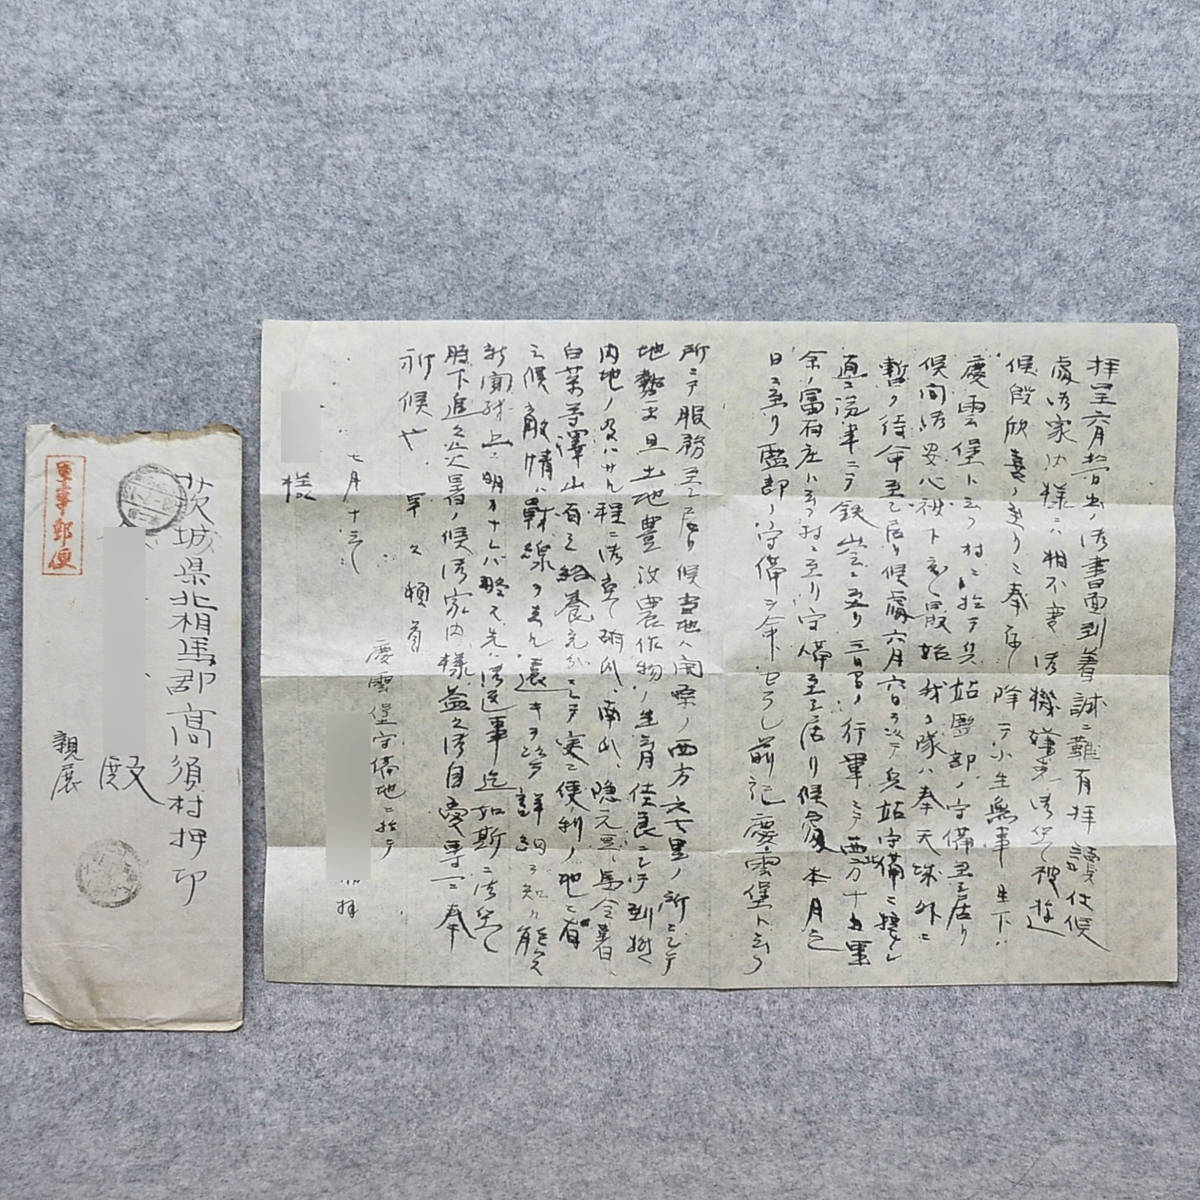 軍事郵便
茨城県北相馬郡高須村押切
殿
親展
拝呈六月廿日出ノ御書面到着誠ニ難有拝讀仕候
處御家内様ニハ相不変御機嫌克御暮被遊
候段欣喜ノ至リニ奉存降テ小生無事
慶雲堡ト云フ村ニ於テ兵站監部ノ守備至シ居リ
候間御安心被下度最始我々隊ハ奉天城外ニ
暫ク待命至シ居リ候處六月六日ヲ以テ兵站守備ニ
直ニ汽車ニテ鉄嶺ニ至リ三日間ノ行軍ニテ西方十五里
余ノ富村庄ト云フ村ニ至リ守備至シ居リ候處本月
日ニ至リ監部ノ守備ヲ命ゼラレ前記慶雲堡ト云フ
所ニテ服務至シ居リ候当地ハ開原ノ西方六七里ノ所ニシテ
地勢平且土地豊沃農作物ノ生育佳良ニシテ到底
内地ノ及バサル程ニ御座候胡瓜、南瓜、隠元豆、馬令薯、
白菜等澤山有之給養充分ニシテ実ニ便利ノ地ニ有
之候敵情ハ戦線ヨリ遠キヲ以テ詳細ヲ知リ能ハズ
新聞紙上ニ明カナレバ略ス先ハ御返事迄如斯ニ御座候
時下追々炎暑ノ候御家内様益々御自愛専一ニ奉
祈候也 早々頓首
慶雲堡守備地ニ於テ
七月十三日
拝
様